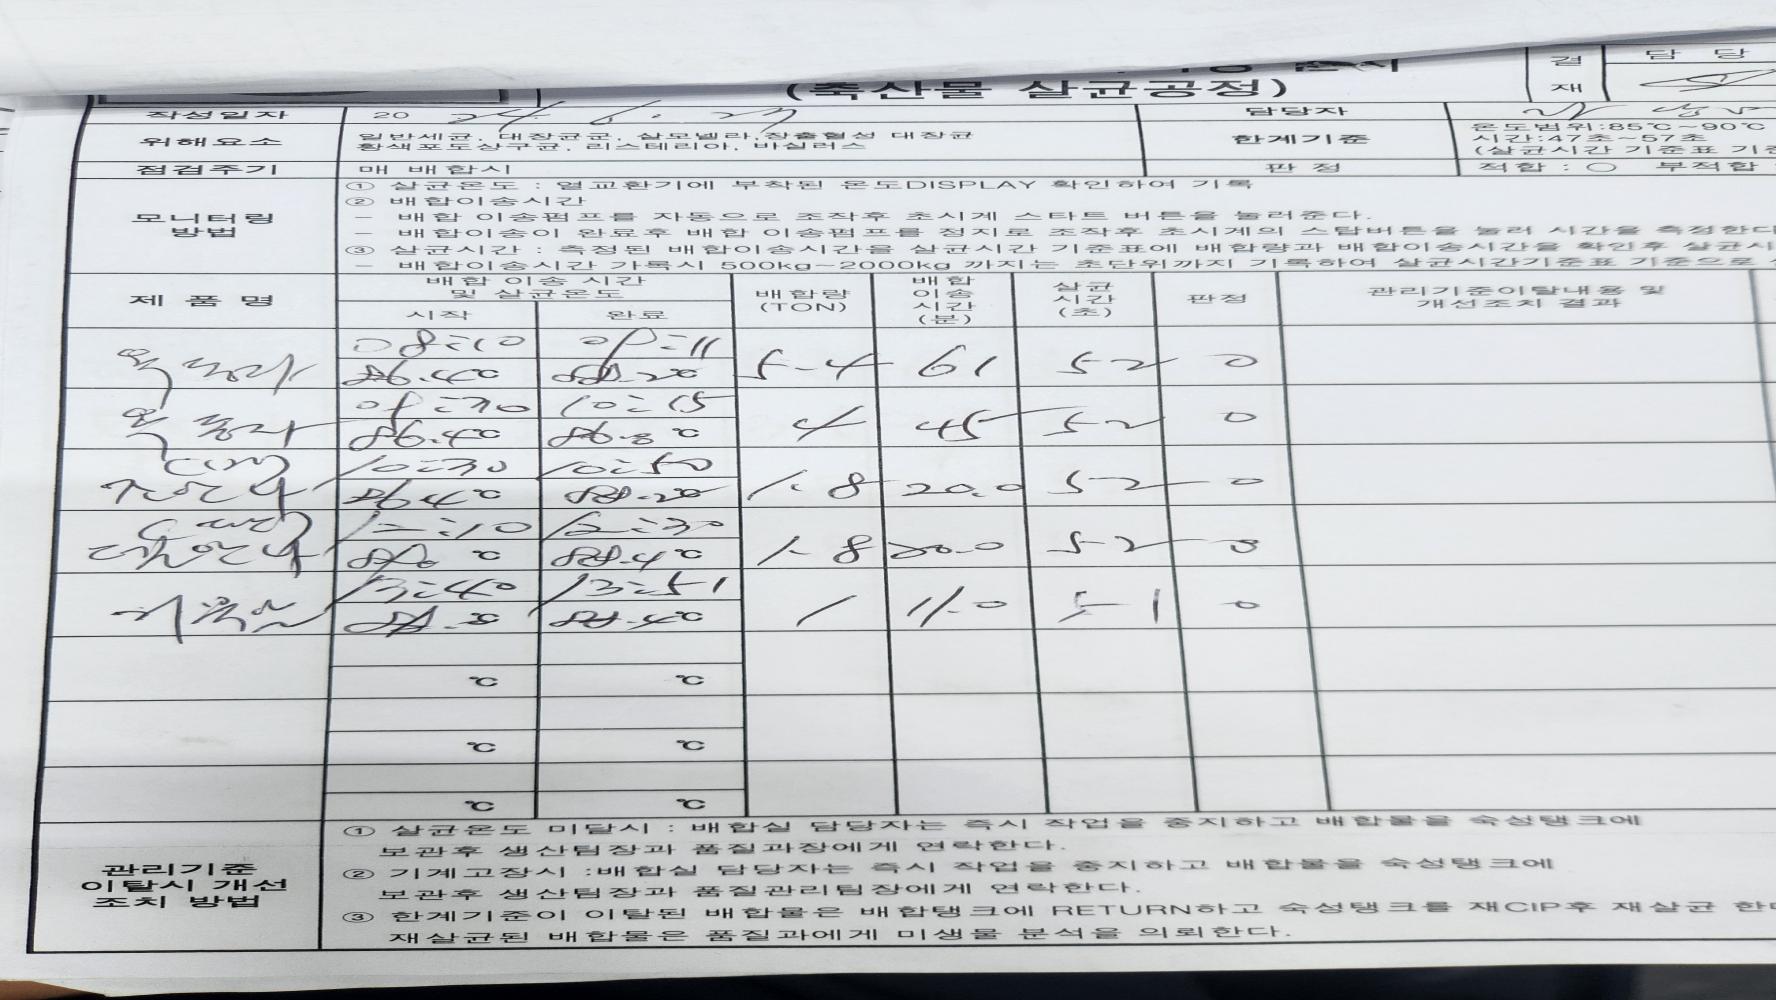 (축산물 살균공정)
결재
담 당
작성일자
20 24. 6. 27
담당자
위해요소
일반세균, 대장균군, 살모넬라, 장출혈성 대장균
황색포도상구균, 리스테리아, 바실러스
한계기준
온도범위:85℃~90℃
시간:47초~57초
(살균시간 기준표 기준
점검주기
매 배합시
판 정
적합 : ○ 부적합
모니터링
방법
① 살균온도 : 열교환기에 부착된 온도DISPLAY 확인하여 기록
② 배합이송시간
- 배합 이송펌프를 자동으로 조작후 초시계 스타트 버튼을 눌러준다.
- 배합이송이 완료후 배합 이송펌프를 정지로 조작후 초시계의 스탑버튼을 눌러 시간을 측정한다
③ 살균시간 : 측정된 배합이송시간을 살균시간 기준표에 배합량과 배합이송시간을 확인후 살균시
- 배합이송시간 기록시 500kg~2000kg 까지는 초단위까지 기록하여 살균시간기준표 기준으로
제 품 명
배합 이송 시간
및 살균온도
시작
완료
배합량
(TON)
배합
이송
시간
(분)
살균
시간
(초)
판정
관리기준이탈내용 및
개선조치 결과
08:10 09:11
86.4℃ 88.2℃
5.4 61 52 0
09:30 10:15
86.4℃ 86.8℃
4 45 52 0
10:30 10:50
86.4℃ 88.2℃
1.8 20.0 52 0
12:10 12:30
℃ 88.4℃
1.8 20.0 52 0
13:40 13:51
℃ ℃
1 11.0 51 0
℃ ℃
℃ ℃
℃ ℃
관리기준
이탈시 개선
조치 방법
① 살균온도 미달시 : 배합실 담당자는 즉시 작업을 중지하고 배합물을 숙성탱크에
보관후 생산팀장과 품질과장에게 연락한다.
② 기계고장시 :배합실 담당자는 즉시 작업을 중지하고 배합물을 숙성탱크에
보관후 생산팀장과 품질관리팀장에게 연락한다.
③ 한계기준이 이탈된 배합물은 배합탱크에 RETURN하고 숙성탱크를 재CIP후 재살균 한다
재살균된 배합물은 품질과에게 미생물 분석을 의뢰한다.